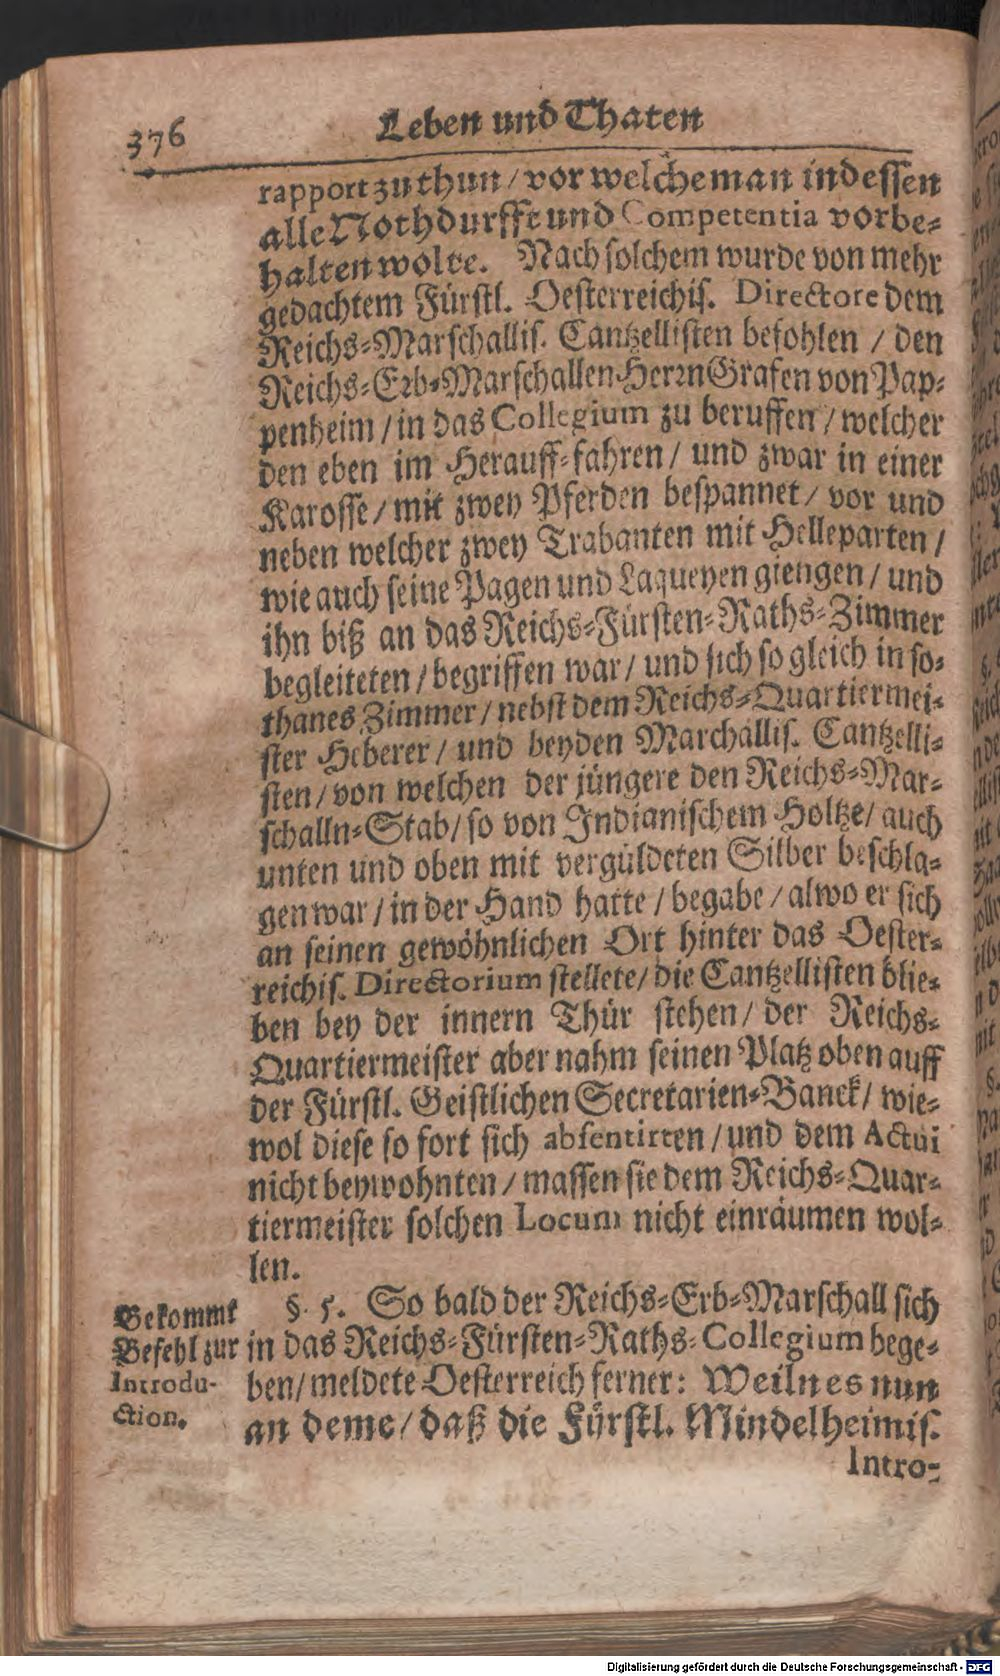 376
Leben und Thaten
rapport zu thun / vor welche man indessen
alle Nothdurfft und Competentia vorbe-
halten wolte. Nach solchem wurde von mehr
gedachtem Fürstl. Oesterreichis. Directore dem
Reichs-Marschallis. Cantzellisten befohlen / den
Reichs-Erb-Marschallen Herrn Grafen von Pap-
penheim / in das Collegium zu beruffen / welcher
den eben im Herauff-fahren / und zwar in einer
Karosse / mit zwey Pferden bespannet / vor und
neben welcher zwey Trabanten mit Helleparten /
wie auch seine Pagen und Laqueyen giengen / und
ihn biß an das Reichs-Fürsten-Raths-Zimmer
begleiteten / begriffen war / und sich so gleich in so-
thanes Zimmer / nebst dem Reichs-Quartiermei-
ster Heberer / und beyden Marchallis. Cantzelli-
sten / von welchen der jüngere den Reichs-Mar-
schalln-Stab / so von Indianischem Holtze / auch
unten und oben mit vergüldeten Silber beschla-
gen war / in der Hand hatte / begabe / alwo er sich
an seinen gewöhnlichen Ort hinter das Oester-
reichis. Directorium stellete / die Cantzellisten blie-
ben bey der innern Thür stehen / der Reichs-
Quartiermeister aber nahm seinen Platz oben auff
der Fürstl. Geistlichen Secretarien-Banck / wie-
wol diese so fort sich absentirten / und dem Actui
nicht beywohnten / massen sie dem Reichs-Quar-
tiermeister solchen Locum nicht einräumen wol-
len.
Bekommt
Befehl zur
Introdu-
ction.
§. 5. So bald der Reichs-Erb-Marschall sich
in das Reichs-Fürsten-Raths-Collegium bege-
ben / meldete Oesterreich ferner: Weiln es nun
an deme / daß die Fürstl. Mindelheimis.
Intro-
Digitalisierung gefördert durch die Deutsche Forschungsgemeinschaft - DFG